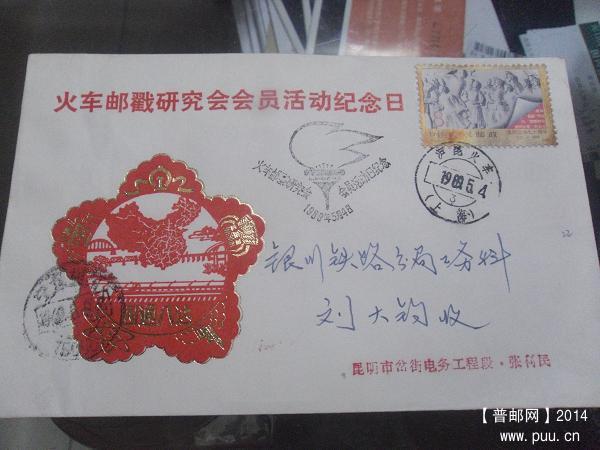 火车邮戳研究会会员活动纪念日
中国人民邮政
火车邮戳研究会
会员活动日纪念
1989年5月4日
沪昆火车
1989.5.4
3
(上海)
四通八达
银川铁路分局工务科
刘大钧收
昆明市岔街电务工程段·张何民
【普邮网】2014
www.puu.cn